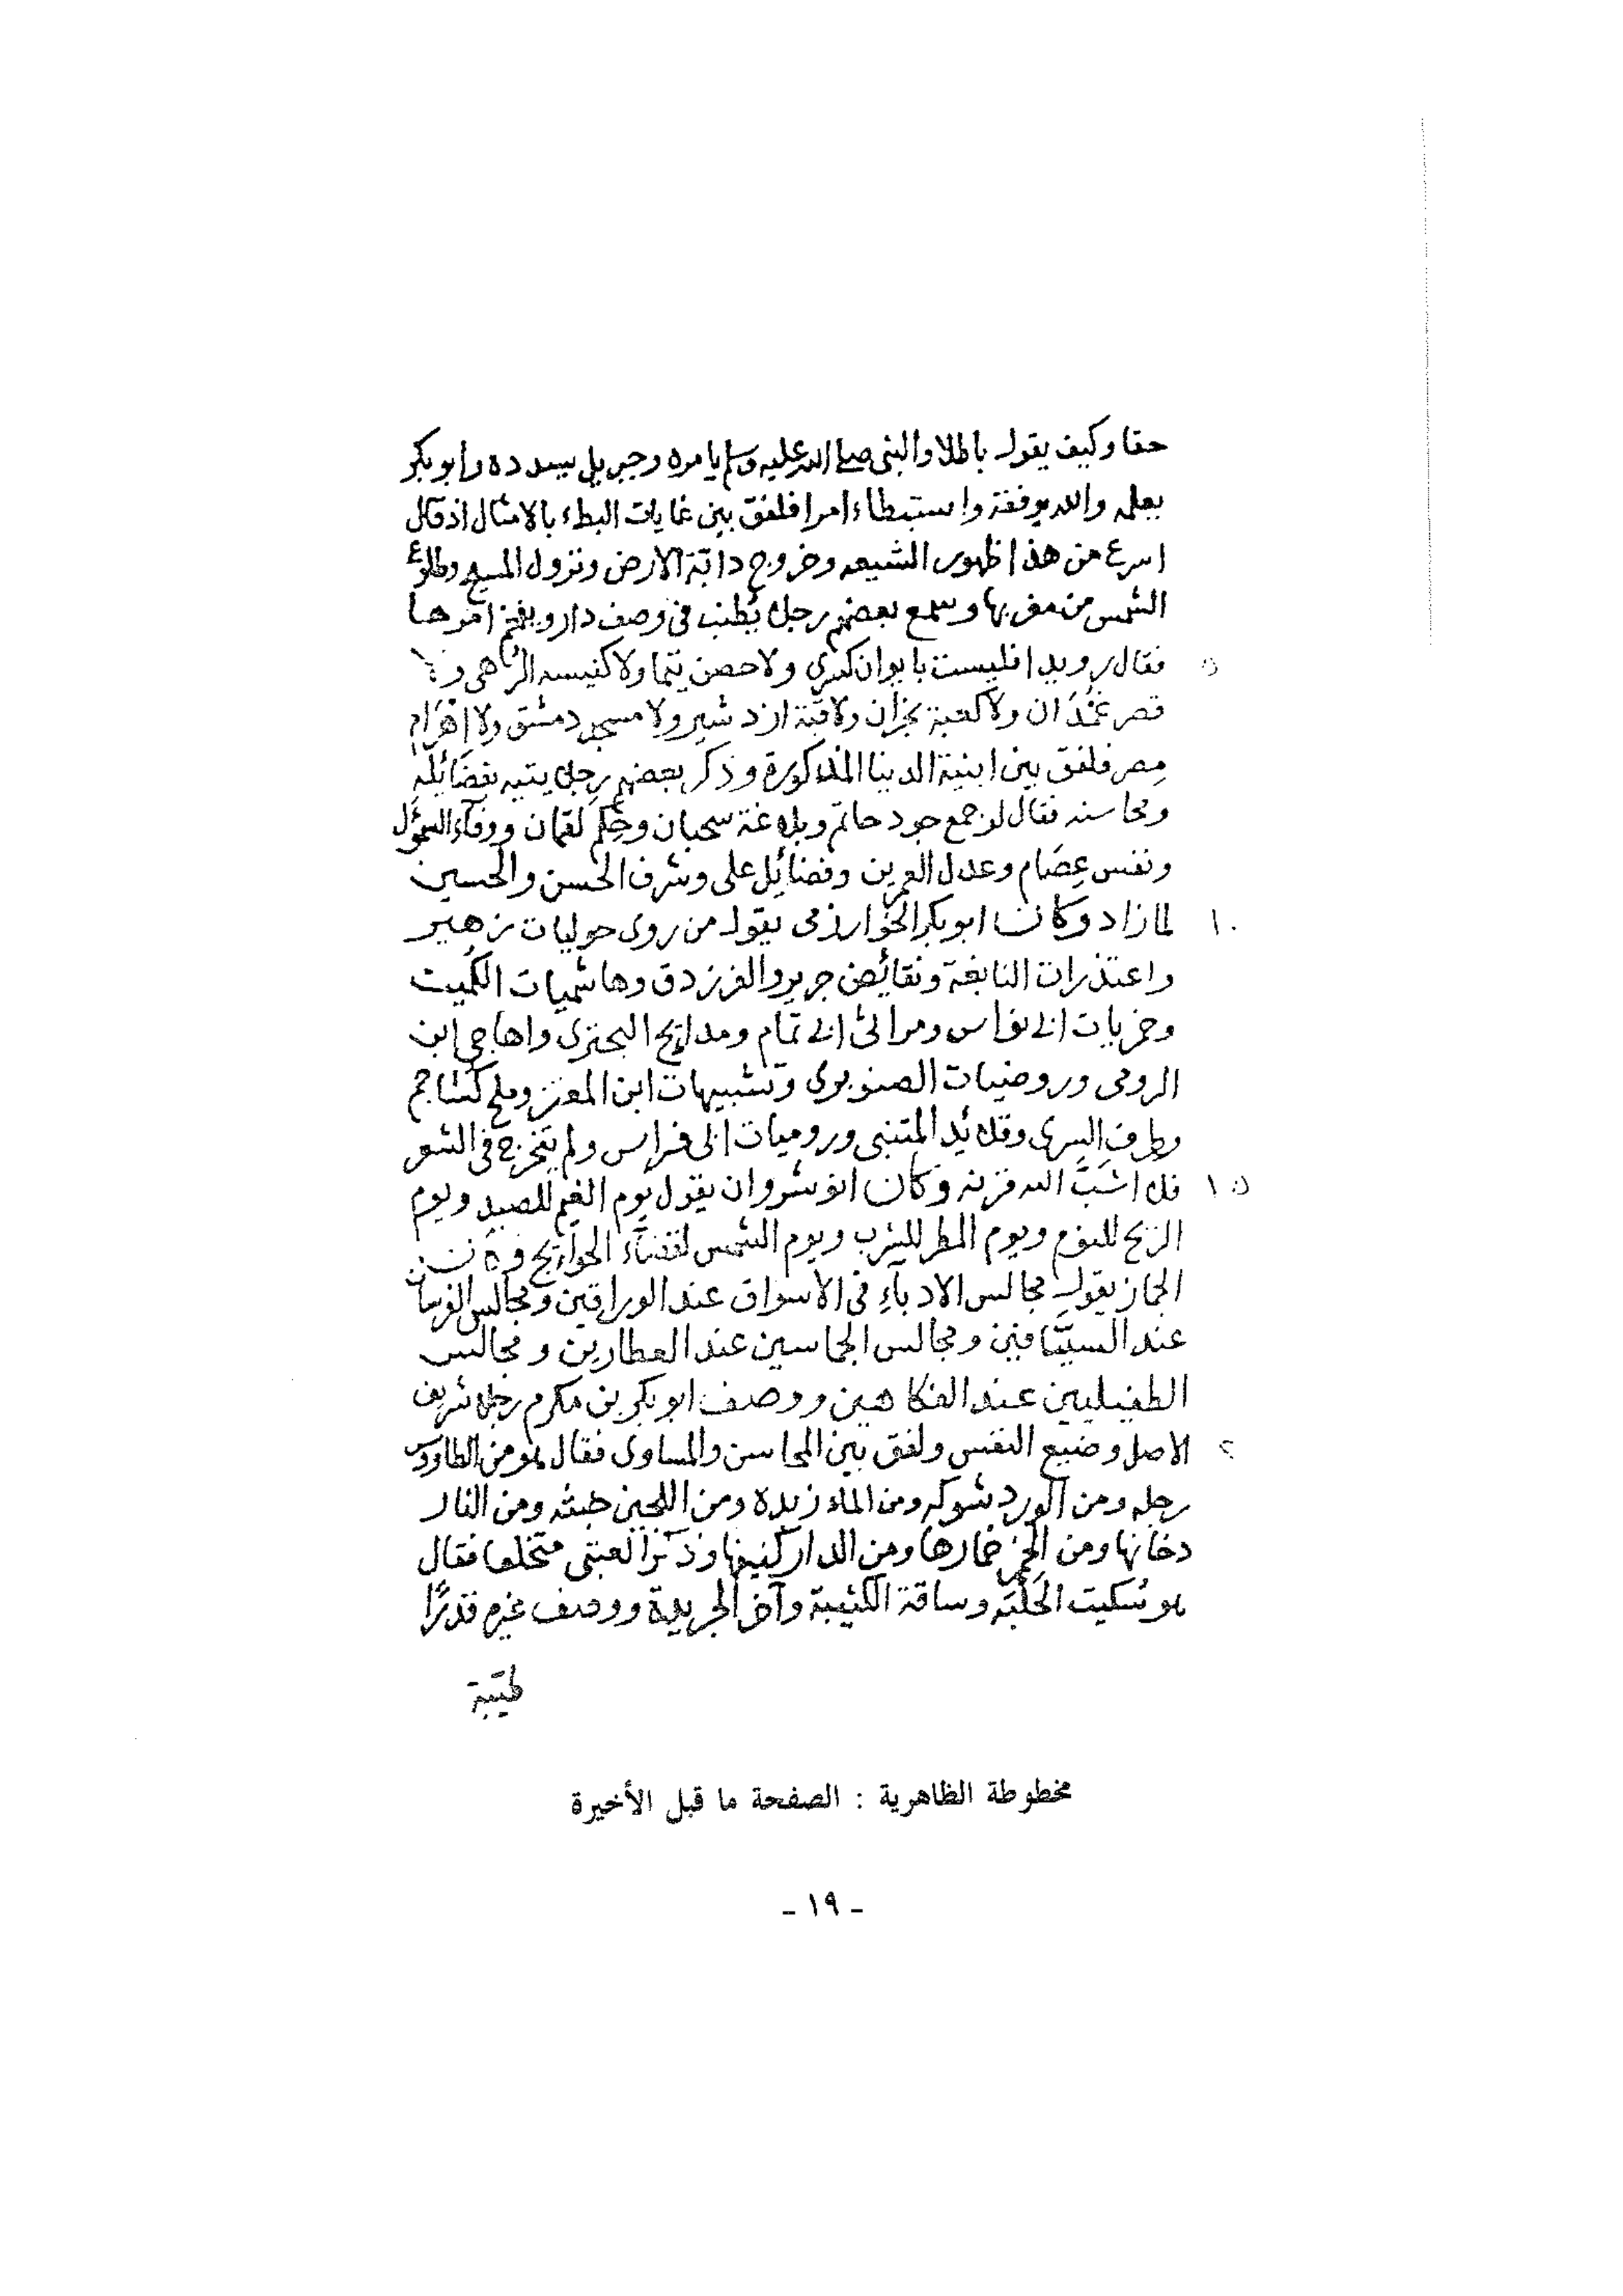 حقا وكيف يقول باطلا والنبي صلى الله عليه وسلم يامره وجبريل يسدده وابو بكر
يعلمه والله يوفقه واستبطاء امرا فلفق بين غايات البطء بالامثال اذ قال
اسرع من هذا ظهور الشيعه وخروج دابّة الارض ونزول المسيح وطلوع
الشمس من مغربها وسمع بعضهم رجلا يُطنب في وصف دار ويفخم امرها
٥ فقال رويدا فليست بايوان كسرى ولا حصن تيما ولا كنيسه الرُّها هي ولا
قصر غُمْدَان ولا كعبة نجران ولا قبّة ازدشير ولا مسجد دمشق ولا اهْرَام
مِصر فلفق بين ابنية الدنيا المذكورة وذكر بعضهم رجلا يتيه بفضَائله
ومحاسنه فقال لو جمع جود حاتم وبلاغة سحبان وحِكم لقمان ووفآء السموْل
ونفس عِصَام وعدل العمرين وفضائل على وشرف الحسن والحسين
١٠ لما زاد وكان ابو بكر الخوارزمى يقول من روى حوليات زهير
واعتذرات النابغة ونقائض جرير والفرزدق وهاشميات الكُميت
وخمريات ابى نواس ومراثى ابى تمّام ومدايح البحترى واهاجى ابن
الرومى وروضيات الصنوبرى وتشبيهات ابن المعتز وملح كشاجم
وطرف السرى وقلائد المتنبى وروميات ابى فراس ولم يتخرج فى الشعر
١٥ فلا اشَبَّ الله قرنه وكان انوشروان يقول يوم الغيم للصيد ويوم
الريح للنوم ويوم المطر للشرب ويوم الشمس لقضآء الحوايج وكان
الجماز يقول مجالس الادبآء فى الاسواق عند الوراقين ومجالس الفرسان
عند السيَّافين ومجالس الجاسين عند العطارين ومجالس
الطفيليين عند الفكاهين ووصف ابو بكر بن مكرم رجلا شريف
٢ الاصل وضيع النفس ولفق بين المحاسن والمساوى فقال هو من الطاووس
رجله ومن الورد شوكه ومن الماء زبده ومن اللجين خبثه ومن النار
دخانها ومن الخمر خمارها ومن الدار كنيفها وذكر العتبى متخلفا فقال
هو سُكيت الحَلْبَة وساقة الكتيبة وآخر الجريدة ووصف غيره قدرًا
طيّبة
مخطوطة الظاهرية : الصفحة ما قبل الأخيرة
- ١٩ -